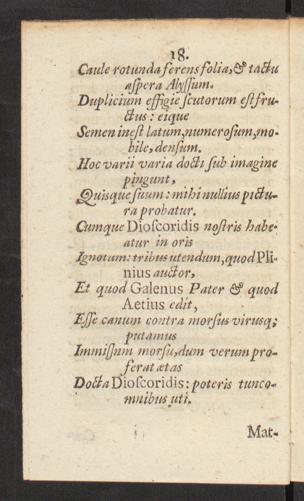 18.
Caule rotunda ferens folia, & tactu
aspera Alyssum.
Duplicium effigie scutorum est fru-
ctus: eique
Semen inest latum, numerosum, mo-
bile, densum.
Hoc varii varia docti sub imagine
pingunt,
Quisque suum: mihi nullius pictu-
ra probatur.
Cumque Dioscoridis nostris habe-
atur in oris
Ignotum: tribus utendum, quod Pli-
nius auctor,
Et quod Galenus Pater & quod
Aetius edit,
Esse canum contra morsus virusq;
putamus
Immissum morsu, dum verum pro-
ferat ætas
Docta Dioscoridis: poteris tunc o-
mnibus uti.
Mat-